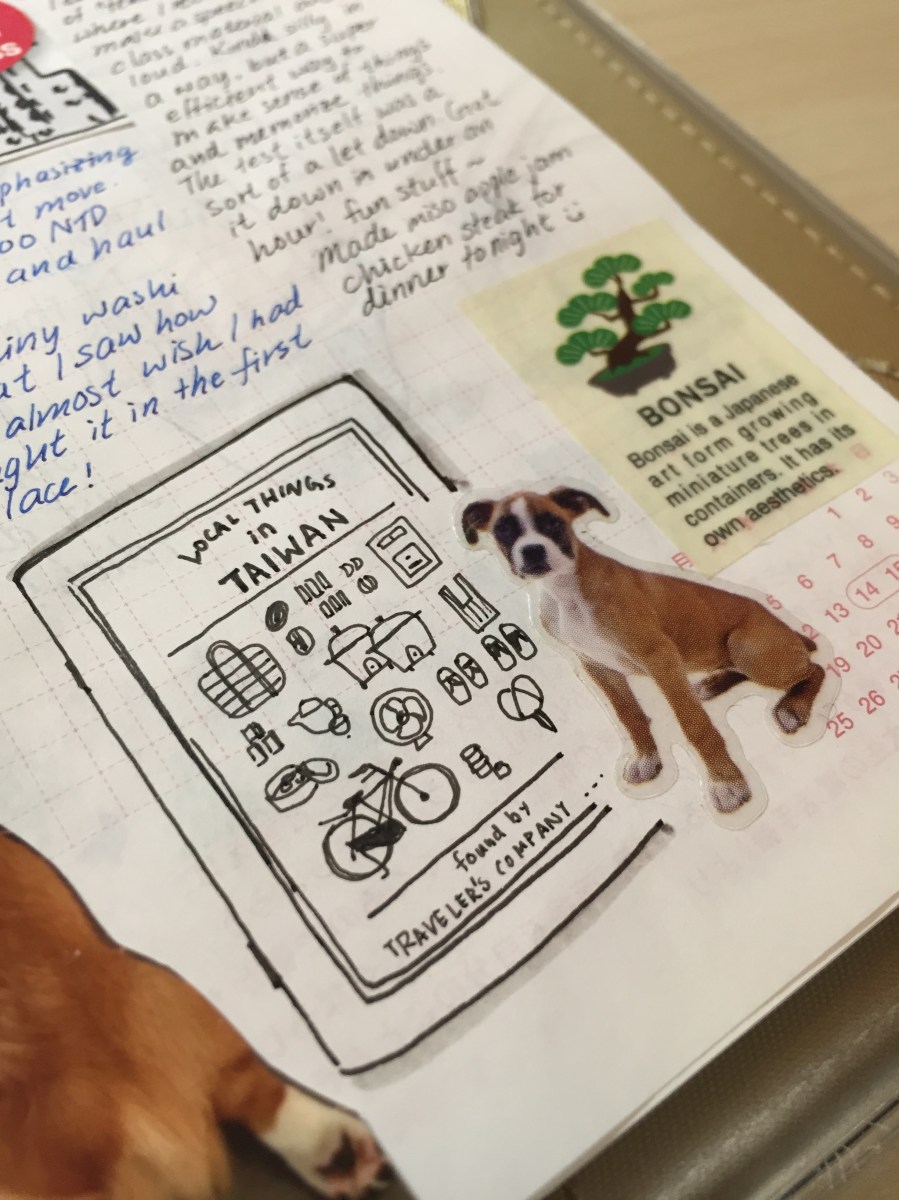 where I
make a speech
class material
loud. Kinda silly in
a way, but a super
efficient way to
make sense of things
and memorize things.
The test itself was a
sort of a let down. Got
it down in under an
hour! fun stuff ~
Made miso apple jam
chicken steak for
dinner tonight
phasizing
t move.
00 NTD
and haul
iny washi
at I saw how
almost wish I had
ght it in the first
lace!
BONSAI
Bonsai is a Japanese
art form growing
miniature trees in
containers. It has its
own aesthetics.
LOCAL THINGS
in
TAIWAN
found by
TRAVELER'S COMPANY ...
月 日
1 2 3
5 6 7 8 9
2 13 14 15
19 20 21
25 26 2